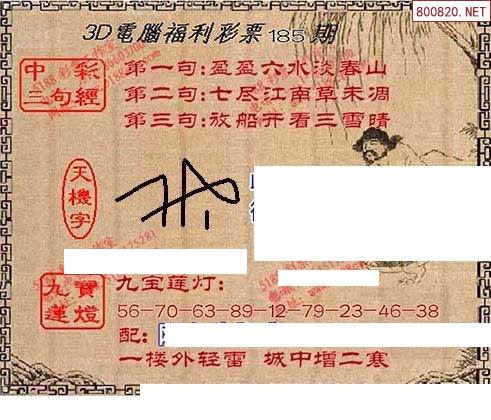 800820.NET
3D電腦福利彩票185期
中彩三句經
第一句:盈盈六水淡春山
第二句:七尽江南草未凋
第三句:放船开看三雪晴
天機字
九寶蓮燈
九宝莲灯:
56-70-63-89-12-79-23-46-38
配:
一楼外轻雷 城中增二寒